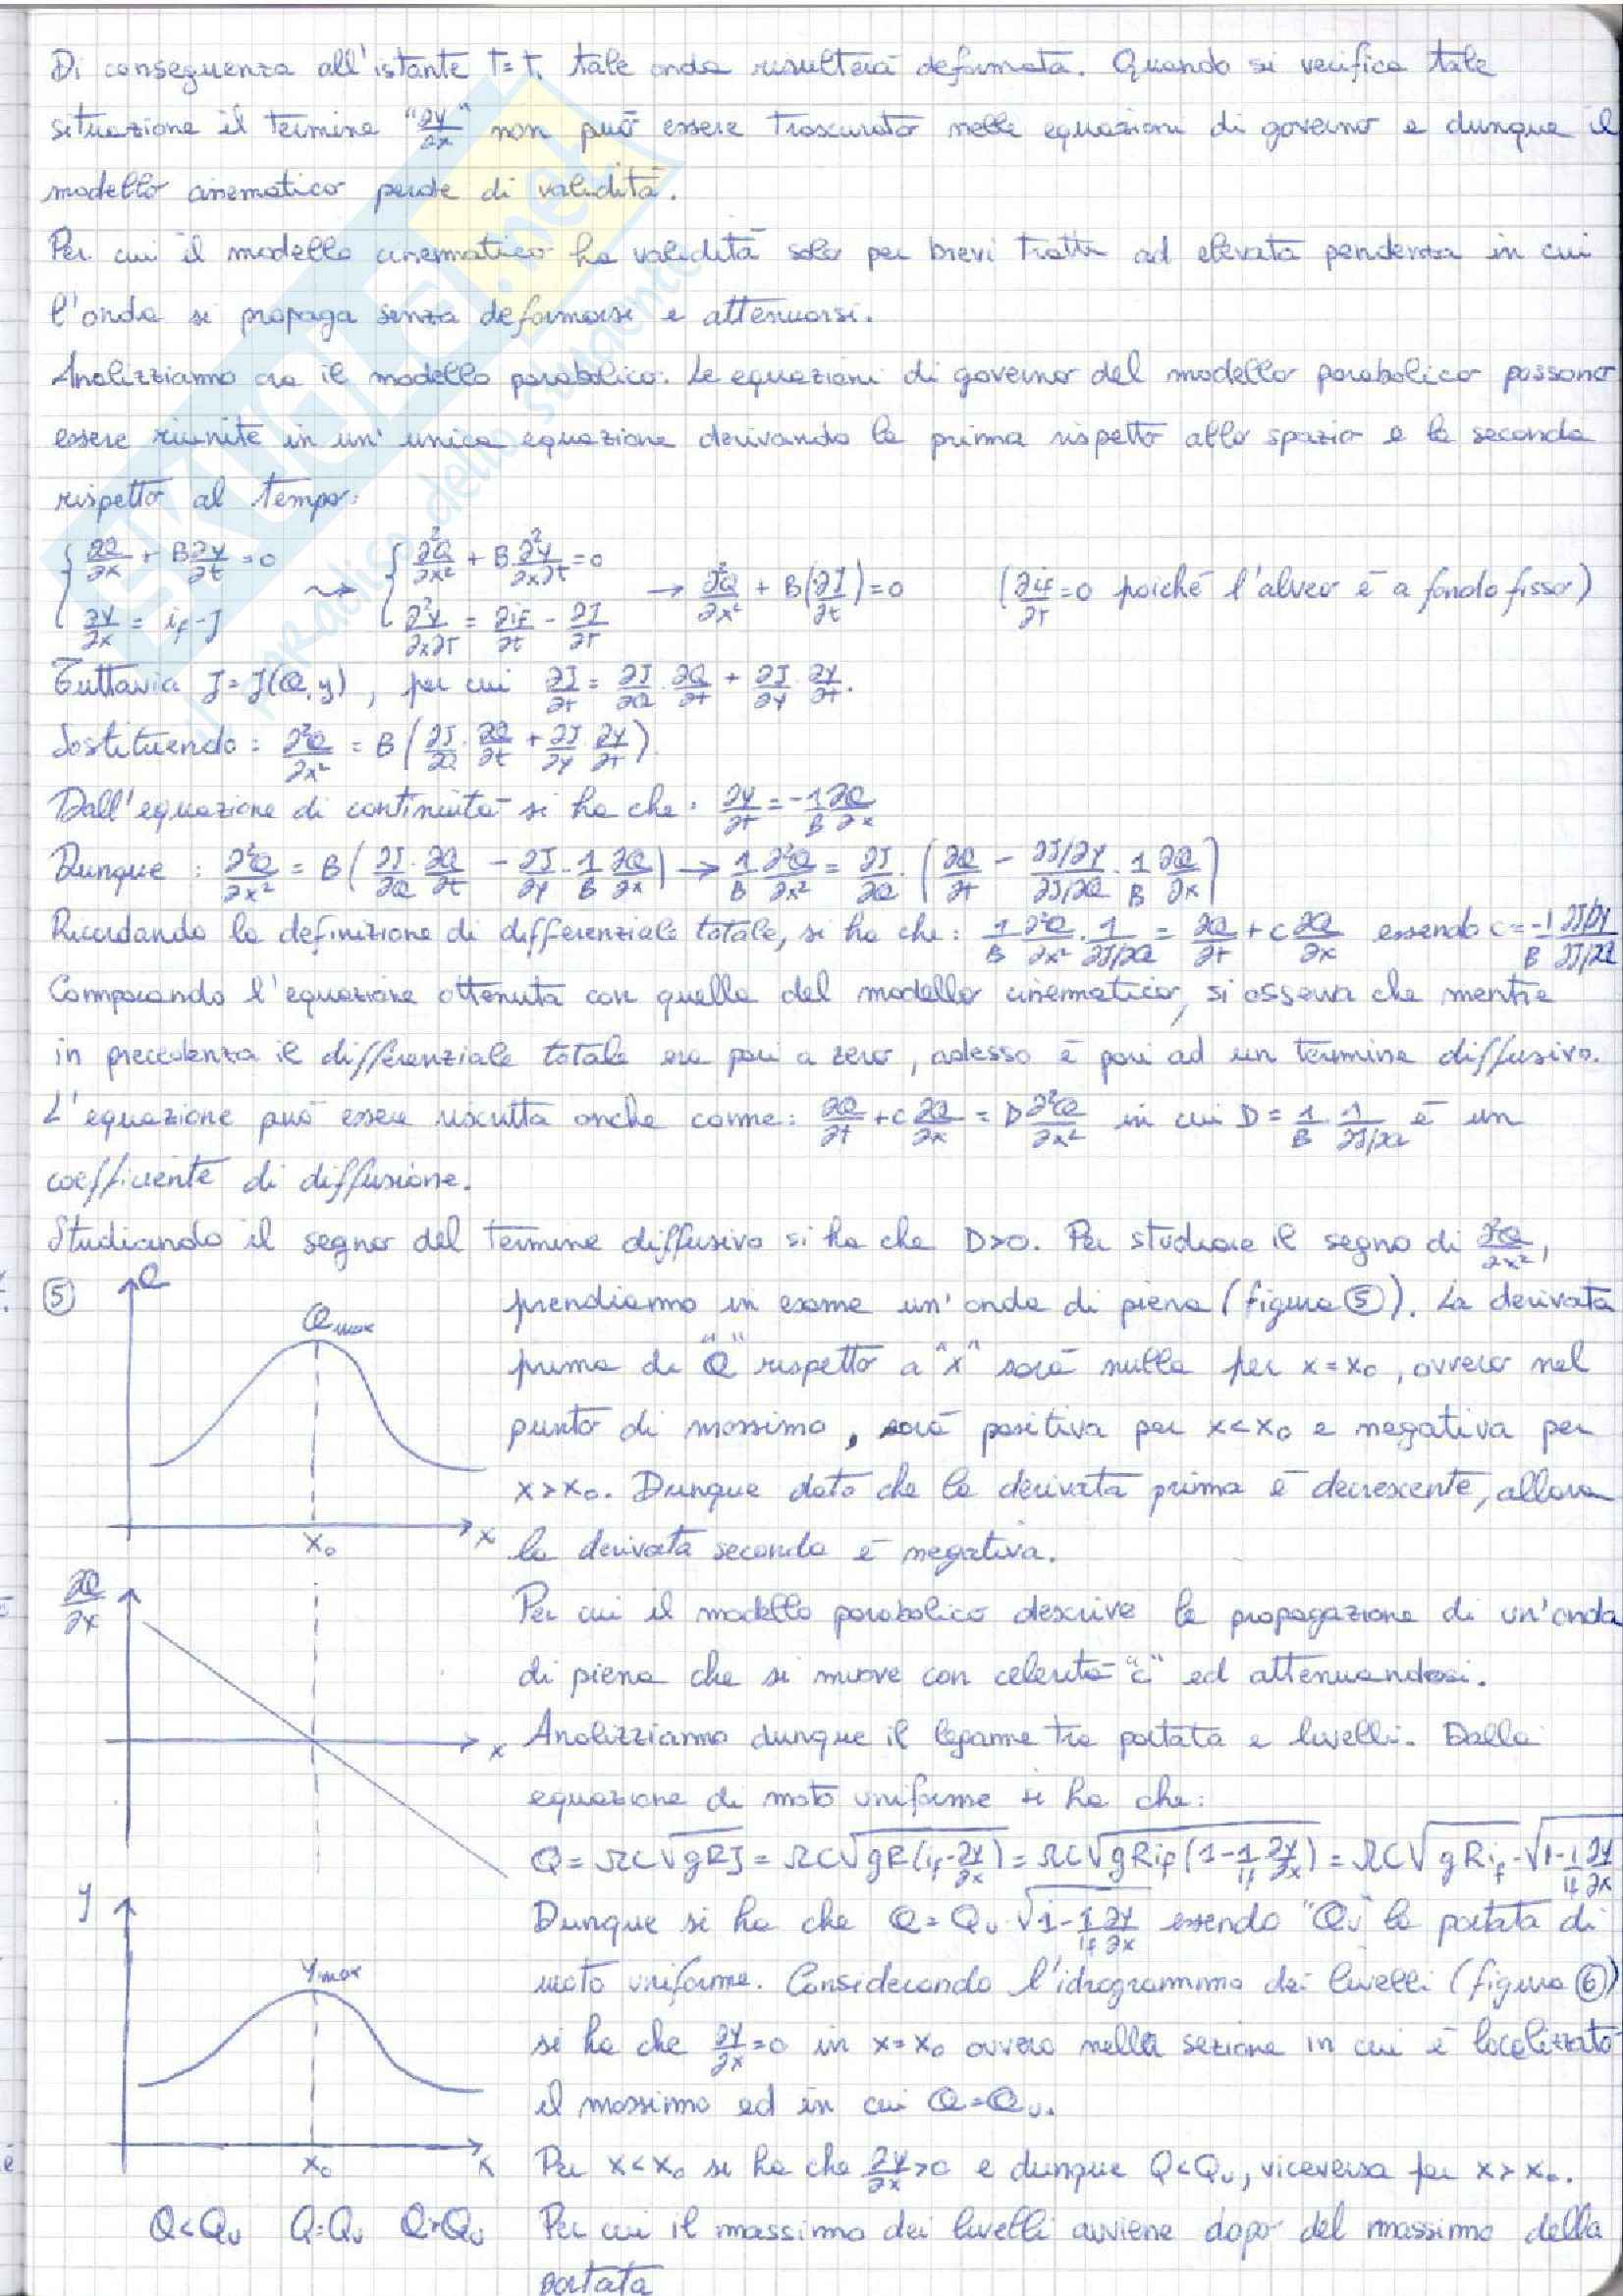 Di conseguenza all'istante t=t₁ tale onda risulterà deformata. Quando si verifica tale
situazione il termine "∂y/∂x" non può essere trascurato nelle equazioni di governo e dunque il
modello cinematico perde di validità.
Per cui il modello cinematico ha validità solo per brevi tratti ad elevata pendenza in cui
l'onda si propaga senza deformarsi e attenuarsi.
Analizziamo ora il modello parabolico. Le equazioni di governo del modello parabolico possono
essere riunite in un'unica equazione derivando la prima rispetto allo spazio e la seconda
rispetto al tempo:
{ ∂Q/∂x + B ∂y/∂t = 0 ; ∂y/∂x = if - J ⇝ { ∂²Q/∂x² + B ∂²y/∂x∂t = 0 ; ∂²y/∂x∂t = ∂if/∂t - ∂J/∂t → ∂²Q/∂x² + B(∂J/∂t) = 0 (∂if/∂t = 0 poiché l'alveo è a fondo fisso)
Tuttavia J = J(Q,y), per cui ∂J/∂t = ∂J/∂Q · ∂Q/∂t + ∂J/∂y · ∂y/∂t.
Sostituendo: ∂²Q/∂x² = B(∂J/∂Q · ∂Q/∂t + ∂J/∂y · ∂y/∂t).
Dall'equazione di continuità si ha che: ∂y/∂t = -1/B ∂Q/∂x
Dunque: ∂²Q/∂x² = B(∂J/∂Q · ∂Q/∂t - ∂J/∂y · 1/B ∂Q/∂x) → 1/B ∂²Q/∂x² = ∂J/∂Q · (∂Q/∂t - (∂J/∂y)/(∂J/∂Q) · 1/B ∂Q/∂x)
Ricordando la definizione di differenziale totale, si ha che: 1/B ∂²Q/∂x² · 1/(∂J/∂Q) = ∂Q/∂t + c ∂Q/∂x essendo c = -1/B (∂J/∂y)/(∂J/∂Q)
Comparando l'equazione ottenuta con quella del modello cinematico, si osserva che mentre
in precedenza il differenziale totale era pari a zero, adesso è pari ad un termine diffusivo.
L'equazione può essere riscritta anche come: ∂Q/∂t + c ∂Q/∂x = D ∂²Q/∂x² in cui D = 1/B · 1/(∂J/∂Q) è un
coefficiente di diffusione.
Studiando il segno del termine diffusivo si ha che D>0. Per studiare il segno di ∂²Q/∂x²,
prendiamo in esame un'onda di piena (figura ⑤). La derivata
prima di "Q" rispetto a "x" sarà nulla per x=x₀, ovvero nel
punto di massimo, sarà positiva per x<x₀ e negativa per
x>x₀. Dunque dato che la derivata prima è decrescente, allora
la derivata seconda è negativa.
Per cui il modello parabolico descrive la propagazione di un'onda
di piena che si muove con celerità "c" ed attenuandosi.
Analizziamo dunque il legame tra portata e livelli. Dalla
equazione di moto uniforme si ha che:
Q = ΩC√(gRJ) = ΩC√(gR(if - ∂y/∂x)) = ΩC√(gRif(1 - 1/if ∂y/∂x)) = ΩC√(gRif) · √(1 - 1/if ∂y/∂x)
Dunque si ha che Q = Qu · √(1 - 1/if ∂y/∂x) essendo "Qu" la portata di
moto uniforme. Considerando l'idrogramma dei livelli (figura ⑥)
si ha che ∂y/∂x = 0 in x=x₀ ovvero nella sezione in cui è localizzato
il massimo ed in cui Q=Qu.
Per x<x₀ si ha che ∂y/∂x>0 e dunque Q<Qu, viceversa per x>x₀.
Per cui il massimo dei livelli avviene dopo del massimo della
portata
⑤
Q
Qmax
x₀
x
∂Q/∂x
x
y
ymax
x₀
x
Q<Qu Q=Qu Q>Qu
SKUOLA.net
il paradiso dello studente